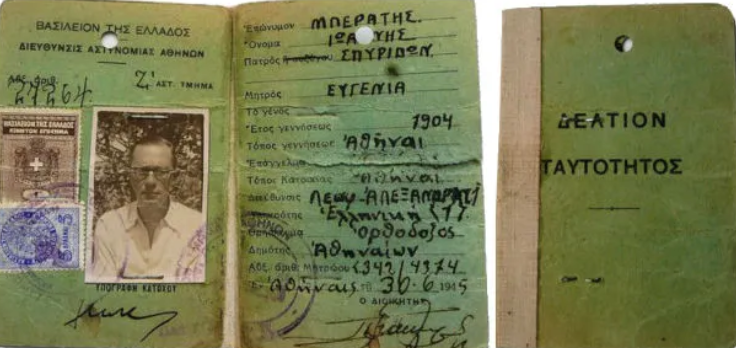 ΒΑΣΙΛΕΙΟΝ ΤΗΣ ΕΛΛΑΔΟΣ
ΔΙΕΥΘΥΝΣΙΣ ΑΣΤΥΝΟΜΙΑΣ ΑΘΗΝΩΝ
Αὔξ. ἀριθ.
27264
Ζ' ΑΣΤ. ΤΜΗΜΑ
ΒΑΣΙΛΕΙΟΝ ΤΗΣ ΕΛΛΑΔΟΣ
ΥΠΟΓΡΑΦΗ ΚΑΤΟΧΟΥ
Ἐπώνυμον ΜΠΕΡΑΤΗΣ.
Ὄνομα ΙΩΑΝΝΗΣ
Πατρὸς ἢ συζύγου ΣΠΥΡΙΔΩΝ.
Μητρός ΕΥΓΕΝΙΑ
Τὸ γένος
Ἔτος γεννήσεως 1904
Τόπος γεννήσεως Ἀθῆναι
Ἐπάγγελμα
Τόπος Κατοικίας Ἀθῆναι
Διεύθυνσις Λεωφ. ΑΛΕΞΑΝΔΡΑΣ
Ἑλληνική
Θρήσκευμα Ὀρθόδοξος
Δημότης Ἀθηναίων
Αὔξ. ἀριθ. Μητρώου 2342/4374
Ἐν Ἀθήναις τῇ 30-6 1945
Ο ΔΙΟΙΚΗΤΗΣ
ΔΕΛΤΙΟΝ
ΤΑΥΤΟΤΗΤΟΣ